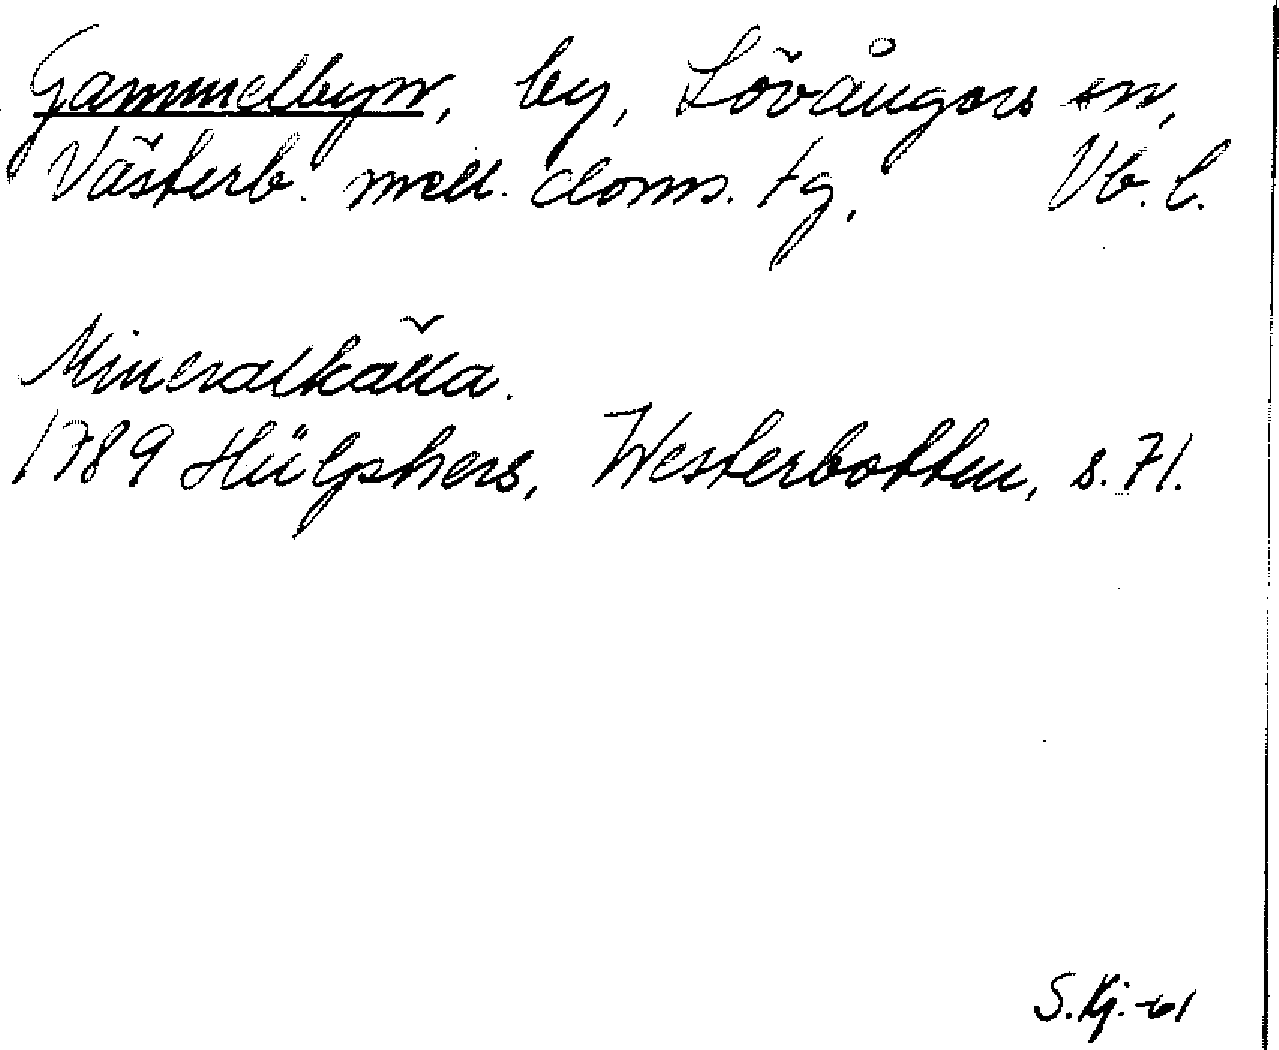 Gammelbyn, by, Lövångers sn,
Västerb. mell. doms. tg, Vb. l.
Mineralkälla.
1789 Hülphers, Westerbotten, s. 71.
S. Kj. -61